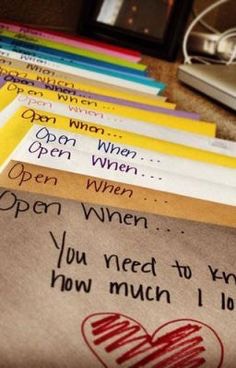 Open When...
Open When...
Open When...
Open When...
Open When...
Open When...
Open When...
Open When...
Open When...
Open When...
You need to kn
how much I lo